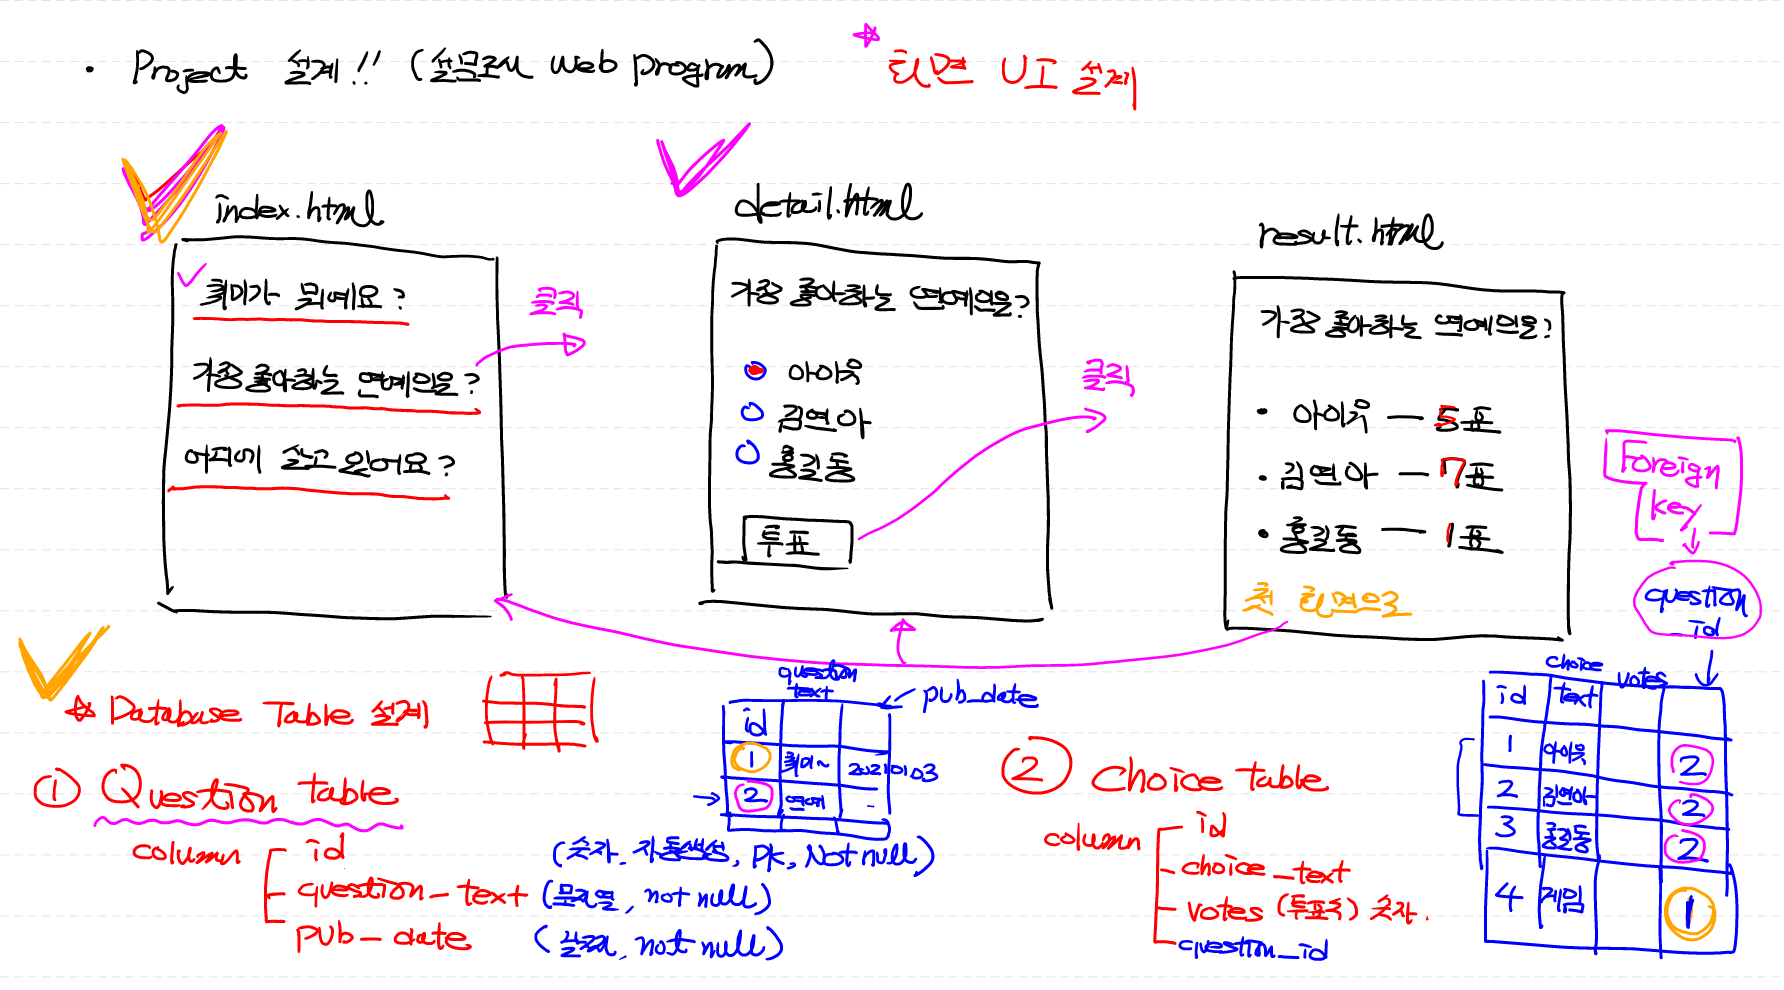 · Project 설계!! (설문조사 Web program)
☆ 화면 UI 설계
index.html
취미가 뭐예요?
가장 좋아하는 연예인은?
어디에 살고 있어요?
클릭
detail.html
가장 좋아하는 연예인은?
아이유
김연아
홍길동
투표
클릭
result.html
가장 좋아하는 연예인은?
· 아이유 — 5표
· 김연아 — 7표
· 홍길동 — 1표
첫 화면으로
Foreign
key
question
_id
☆ Database Table 설계
① Question table
column
id (숫자, 자동생성, PK, Not null)
question_text (문자열, not null)
pub_date (날짜, not null)
question
text
pub_date
id
1 취미~ 20210103
2 연예 -
② Choice table
column
id
choice_text
votes (투표수) 숫자.
question_id
choice
id text votes
1 아이유 2
2 김연아 2
3 홍길동 2
4 게임 1